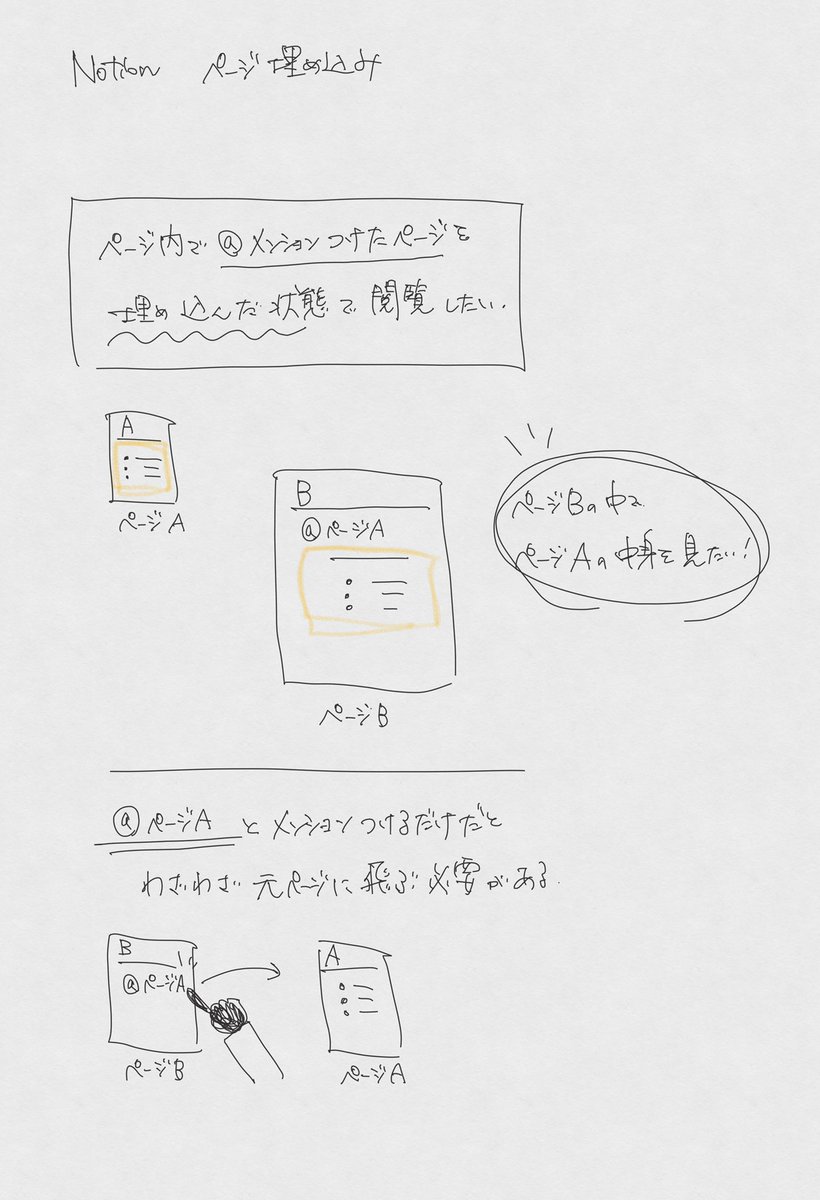 Notion ページ埋め込み
ページ内で @メンションつけたページを
埋め込んだ状態で閲覧したい.
A
ページA
B
@ページA
ページB
ページBの中で
ページAの中身を見たい!
@ページA とメンションつけるだけだと
わざわざ 元ページに飛ぶ必要がある.
B
@ページA
ページB
A
ページA